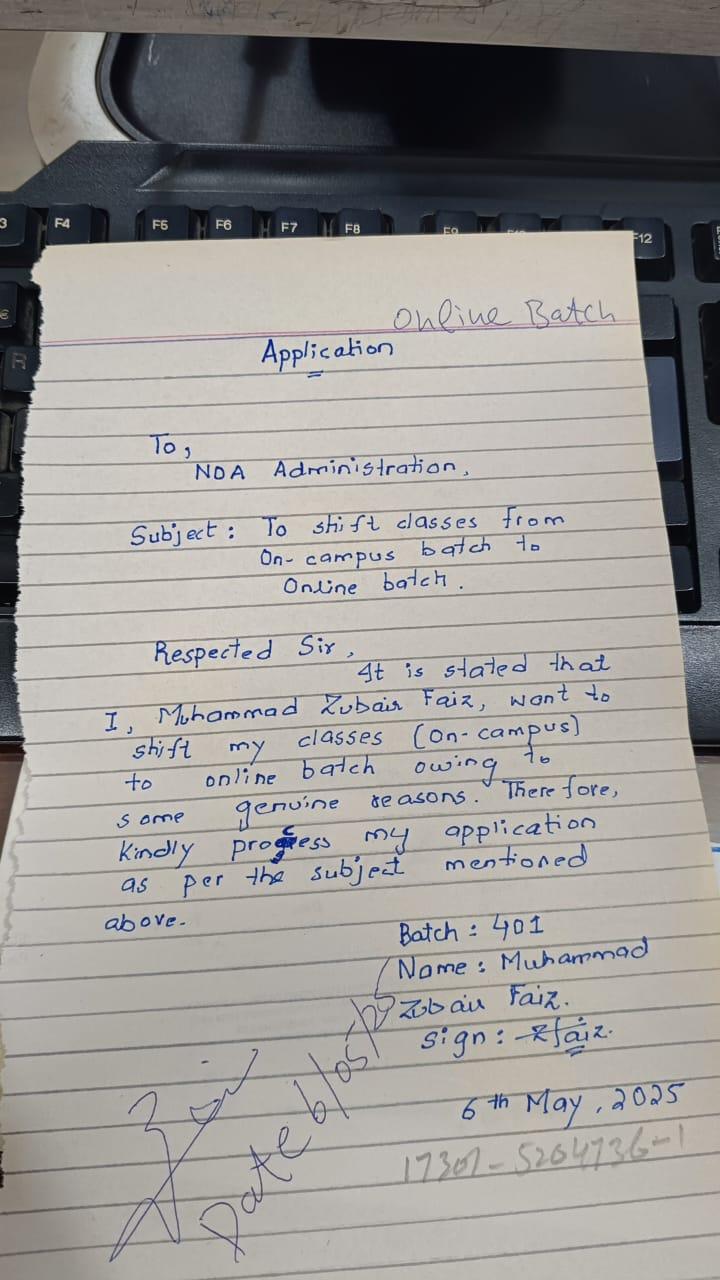 3
F4
F5
F6
F7
F8
F9
F12
€
R
Online Batch
Application
To,
NOA Administration,
Subject: To shift classes from
On-campus batch to
Online batch.
Respected Sir,
It is stated that
I, Muhammad Zubair Faiz, want to
shift my classes (on-campus)
to online batch owing to
some genuine reasons. Therefore,
kindly process my application
as per the subject mentioned
above.
Batch: 401
Name: Muhammad
Zubair Faiz.
Sign: Zfaiz.
6th May, 2025
Date 6/05/25